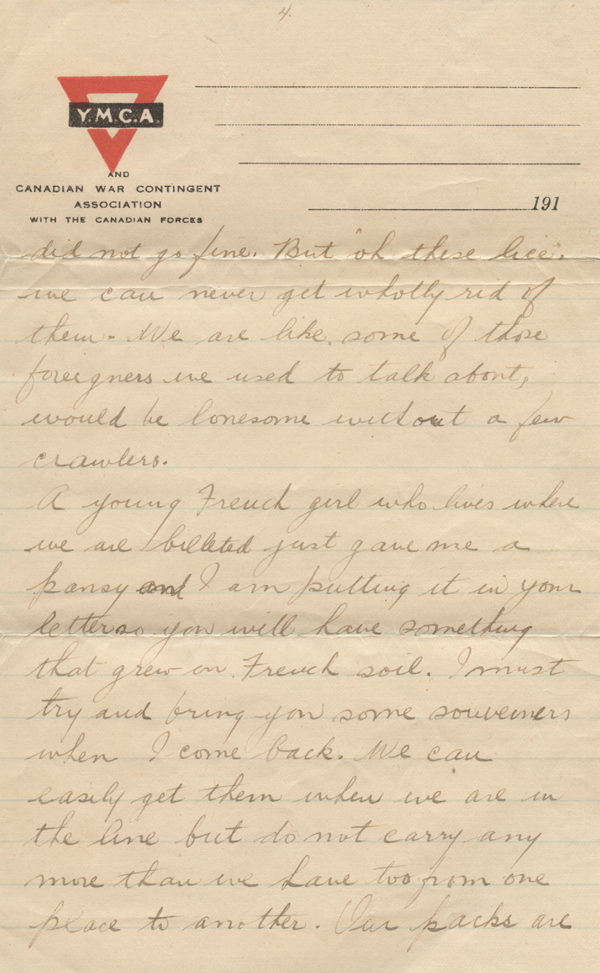 4.
Y.M.C.A.
AND
CANADIAN WAR CONTINGENT
ASSOCIATION
WITH THE CANADIAN FORCES
191
did not go fine. But oh these lice.
we can never get wholly rid of
them. We are like some of those
foreigners we used to talk about,
would be lonesome without a few
crawlers.
A young French girl who lives where
we are billeted just gave me a
pansy and I am putting it in your
letter so you will have something
that grew on French soil. I must
try and bring you some souveiners
when I come back. We can
easily get them when we are in
the line but do not carry any
more than we have too from one
place to another. Our packs are